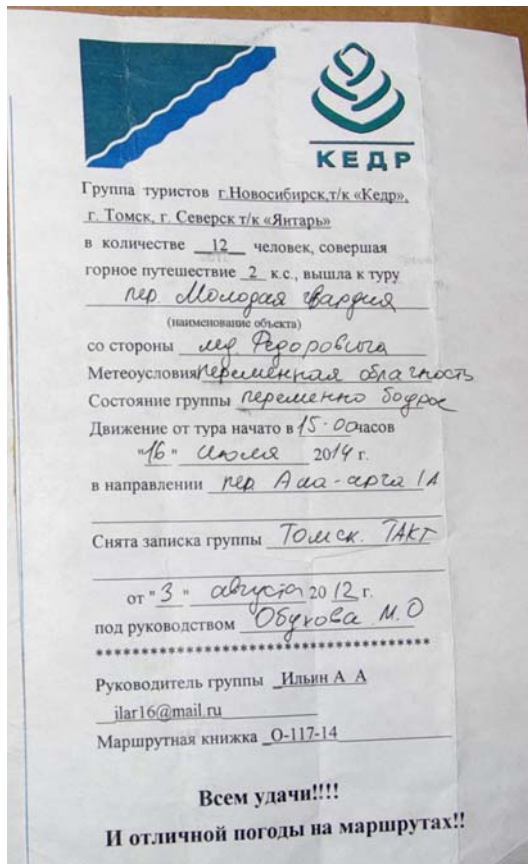 КЕДР
Группа туристов г.Новосибирск,т/к «Кедр»,
г. Томск, г. Северск т/к «Янтарь»
в количестве 12 человек, совершая
горное путешествие 2 к.с., вышла к туру
пер. Молодая гвардия
(наименование объекта)
со стороны лед. Федоровича
Метеоусловия переменная облачность
Состояние группы переменно бодрое
Движение от тура начато в 15-00 часов
"16" июля 2014 г.
в направлении пер Ала-арча 1А
Снята записка группы Томск. ТАКТ
от "3" августа 2012 г.
под руководством Обухова М.О
****************************************
Руководитель группы Ильин А А
ilar16@mail.ru
Маршрутная книжка О-117-14
Всем удачи!!!!
И отличной погоды на маршрутах!!